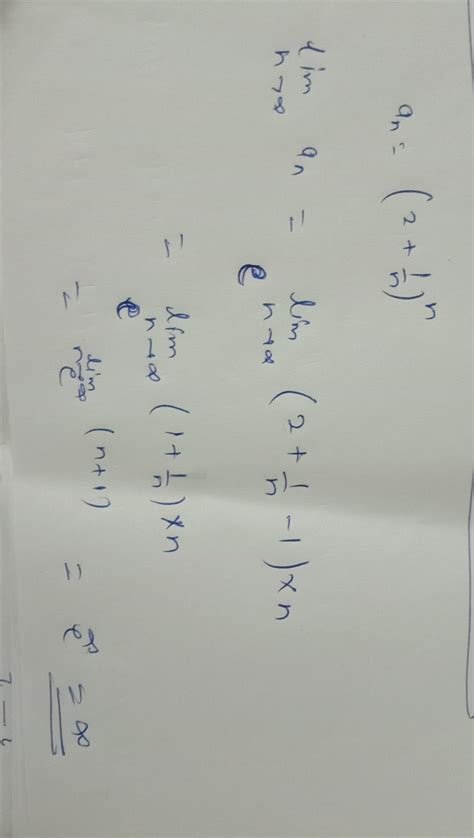 aₙ = (2 + 1/n)ⁿ
lim n→∞ aₙ = e^ lim n→∞ (2 + 1/n - 1) × n
= e^ lim n→∞ (1 + 1/n) × n
= e^ lim n→∞ (n+1) = e^∞ = ∞